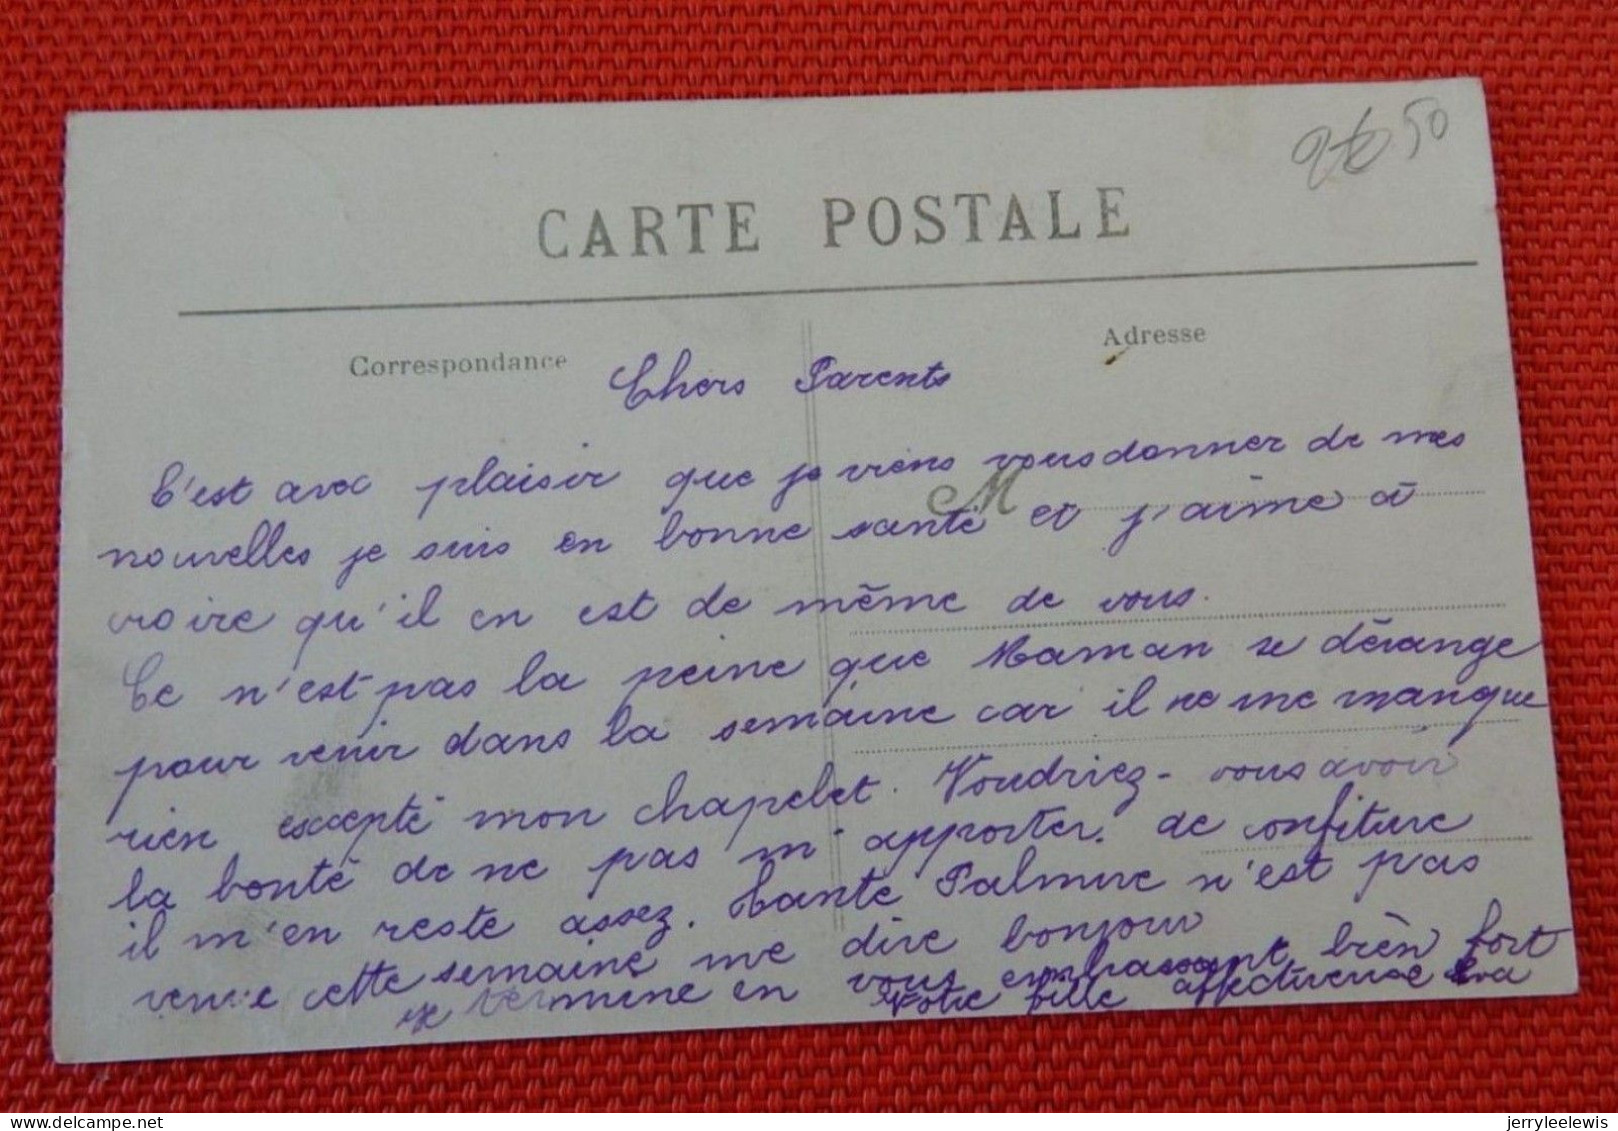 50
CARTE POSTALE
Correspondance
Adresse
Chers Parents
C'est avec plaisir que je viens vous donner de mes
M
nouvelles je suis en bonne santé et j'aime à
croire qu'il en est de même de vous.
Ce n'est pas la peine que Maman se dérange
pour venir dans la semaine car il ne me manque
rien excepté mon chapelet. Voudriez-vous avoir
la bonté de ne pas m'apporter de confiture
il m'en reste assez. Tante Palmire n'est pas
venue cette semaine me dire bonjour
je termine en vous embrassant bien fort
Votre fille affectueuse Eva
jerryleelewis